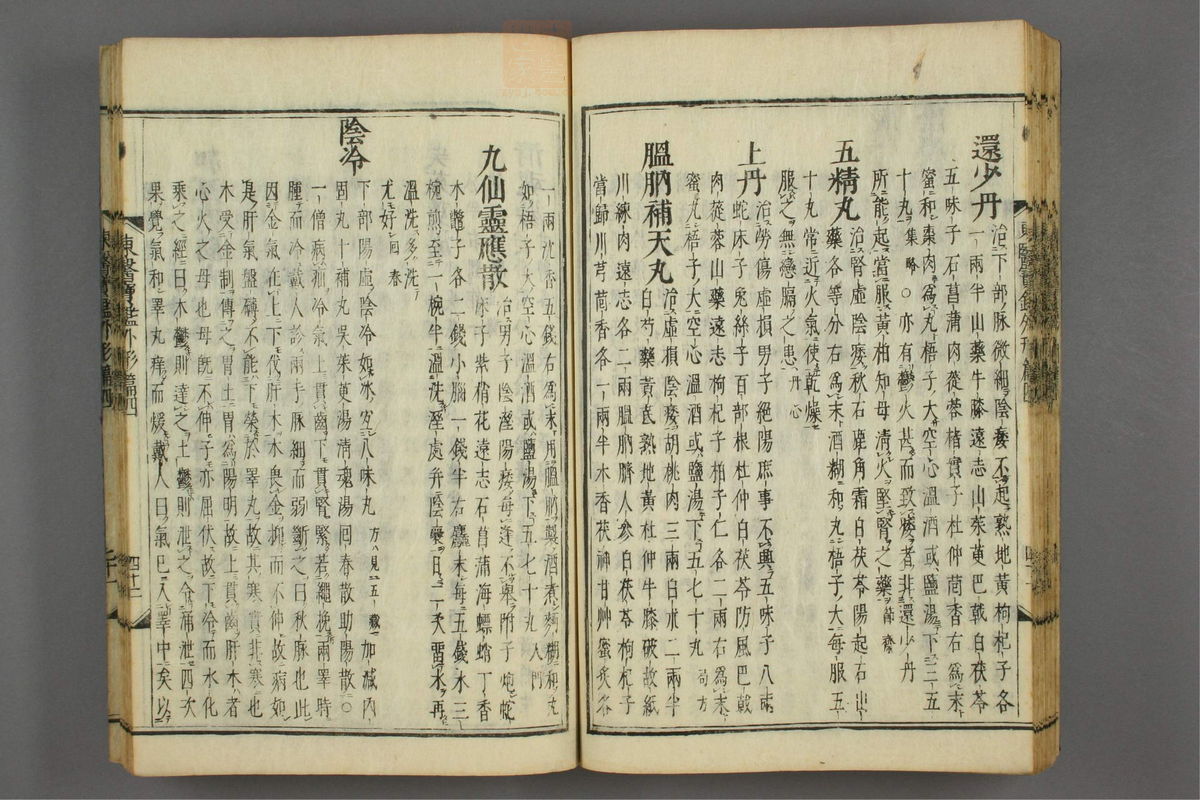 還少丹 治下部脉微細陰痿不起熟地黃枸杞子各
五味子石菖蒲肉蓯蓉楮實子杜仲茴香右爲末
一兩半山藥牛膝遠志山茱萸巴戟白茯苓
蜜和棗肉爲丸梧子大空心溫酒或鹽湯下三五
十丸集略○亦有鬱火甚而致痿者非還少丹
所能起當服黃柏知母淸火堅腎之藥節齋
五精丸 治腎虛陰痿秋石鹿角霜白茯苓陽起石
山藥各等分右爲末酒糊和丸梧子大每服五
十丸常近火氣使乾燥
服之無戀膈之患丹心
上丹 治勞傷虛損男子絕陽庶事不興五味子八兩
蛇床子兔絲子百部根杜仲白茯苓防風巴戟
肉蓯蓉山藥遠志枸杞子柏子仁各二兩右爲末
蜜丸梧子大空心溫酒或鹽湯下五七十丸
膃肭補天丸 治虛損陰痿胡桃肉三兩白氷二兩半
白芍藥黃芪熟地黃杜仲牛膝破故紙
川練肉遠志各二兩膃肭臍人參白茯苓枸杞子
當歸川芎茴香各一兩半木香茯神甘艸蜜炙各
一兩沈香五錢右爲末用膃肭製酒煮麪糊和丸
如梧子大空心溫酒或鹽湯下五七十丸入門
九仙靈應散 治男子陰溼陽痿每逢不興附子炮蛇
床子紫梢花遠志石菖蒲海螵蛸丁香
木鼈子各二錢小腦一錢半右麤末每五錢水三
椀煎至一椀半溫洗溼處幷陰囊日二夭留水再
溫洗多洗
尤好回春
陰冷
下部陽虛陰冷如冰宜八味丸方見五藏加減內
固丸十補丸吳茱萸湯淸魂湯回春散助陽散○
一僧病疝冷氣上貫齒下貫腎緊若繩挽兩睪時
腫而冷戴人診兩手脉細而弱斷之曰秋脉也此
因金氣在上下伐肝木木畏金抑而不伸故病如
是肝氣盤礴不能下榮於睪丸故其寒實非寒也
木受金制傳之胃土胃爲陽明故上貫齒肝木者
心火之母也母旣不伸子亦屈伏故下冷而水化
乘之經曰木鬱則達之土鬱則泄之令涌泄四次
果覺氣和睪丸痒而煖戴人曰氣已入睪中矣以
東醫寶鑑外形篇四